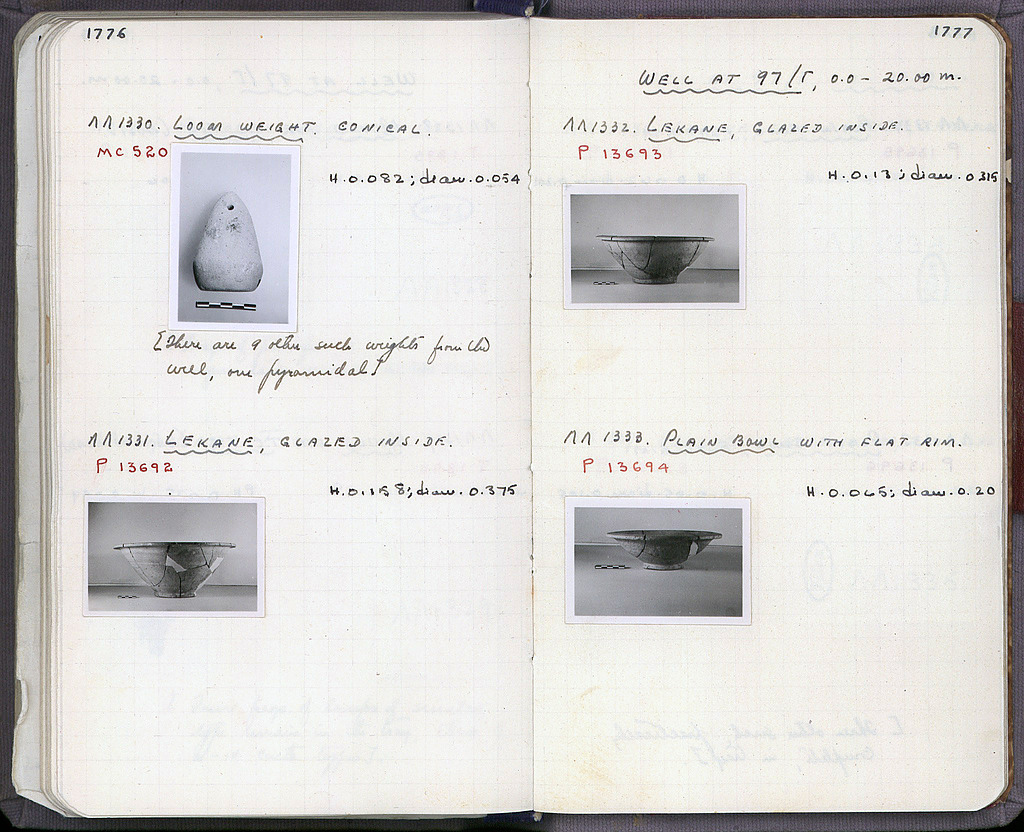 1776
ΛΛ1330. LOOM WEIGHT. CONICAL.
MC 520
H.0.082; diam. 0.054
[There are 9 other such weights from this
well, one pyramidal]
ΛΛ1331. LEKANE, GLAZED INSIDE.
P 13692
H.0.158; diam. 0.375
1777
WELL AT 97/Γ, 0.0 - 20.00 m.
ΛΛ1332. LEKANE, GLAZED INSIDE.
P 13693
H.0.13; diam. 0.315
ΛΛ 1333. PLAIN BOWL WITH FLAT RIM.
P 13694
H.0.065; diam. 0.20